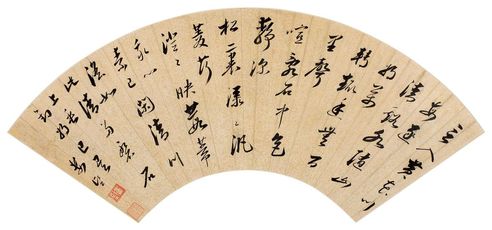 言入黃花川
每逐
清谿水隨山
將萬
轉趣途無百
里聲
喧亂石中色
靜深
松裏漾漾汎
菱荇
澄澄映葭葦
我心
素已閒清川
澹如
此請留盤石
上垂
釣將已矣